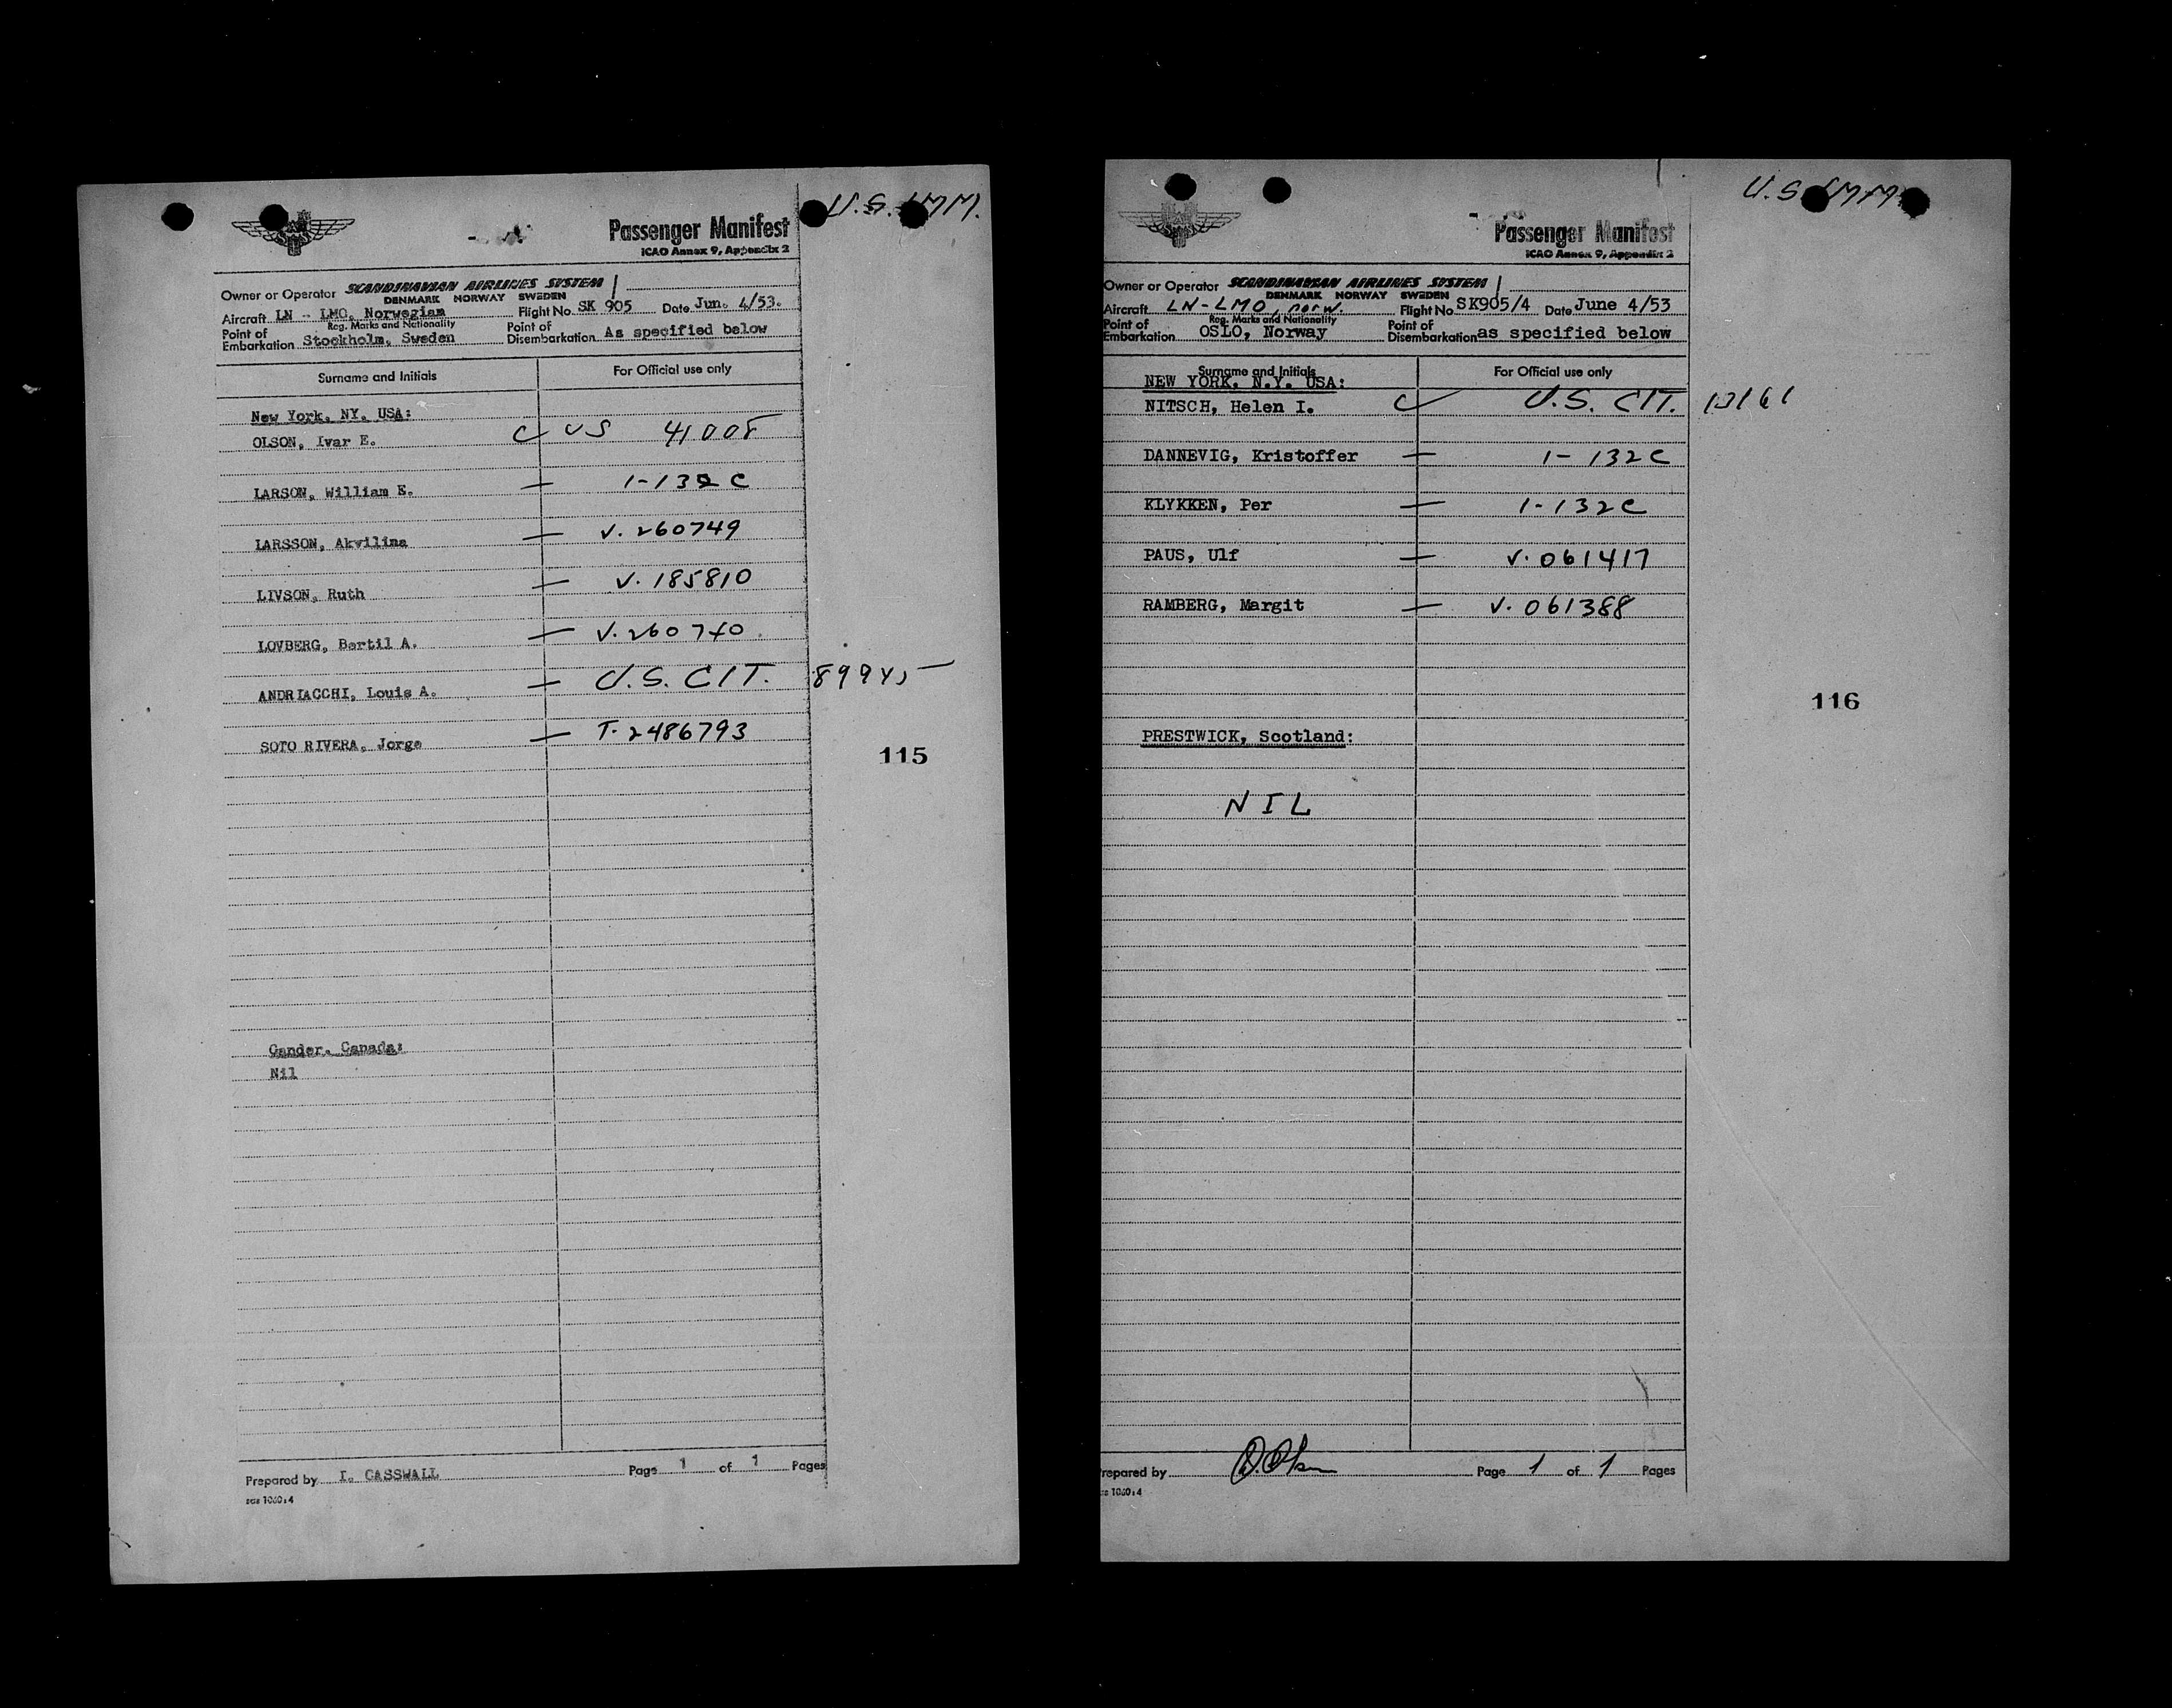 U.S. IMM.
Passenger Manifest
ICAO Annex 9, Appendix 2
Owner or Operator SCANDINAVIAN AIRLINES SYSTEM
DENMARK NORWAY SWEDEN
Aircraft LN - LMO, Norwegian Flight No. SK 905 Date Jun. 4/53.
Reg. Marks and Nationality
Point of Embarkation Stockholm, Sweden Point of Disembarkation As specified below
Surname and Initials For Official use only
New York. NY. USA:
OLSON, Ivar E. C US 41008
LARSON, William E. — 1-132 C
LARSSON, Akvilina — V. 260749
LIVSON, Ruth — V. 185810
LOVBERG, Bertil A. — V. 260740
ANDRIACCHI, Louis A. — U.S. CIT.
SOTO RIVERA, Jorge — T. 2486793
115
Gander. Canada:
Nil
Prepared by I. CASSWALL Page 1 of 1 Pages
SGS 1060:4
U.S IMM
Passenger Manifest
ICAO Annex 9, Appendix 2
Owner or Operator SCANDINAVIAN AIRLINES SYSTEM
DENMARK NORWAY SWEDEN
Aircraft LN-LMO, norw. Flight No. SK905/4 Date June 4/53
Reg. Marks and Nationality
Point of Embarkation OSLO, Norway Point of Disembarkation as specified below
Surname and Initials For Official use only
NEW YORK. N.Y. USA:
NITSCH, Helen I. C U.S. CIT.
DANNEVIG, Kristoffer — 1-132C
KLYKKEN, Per — 1-132C
PAUS, Ulf — V. 061417
RAMBERG, Margit — V. 061388
116
PRESTWICK, Scotland:
NIL
repared by Page 1 of 1 Pages
1060:4